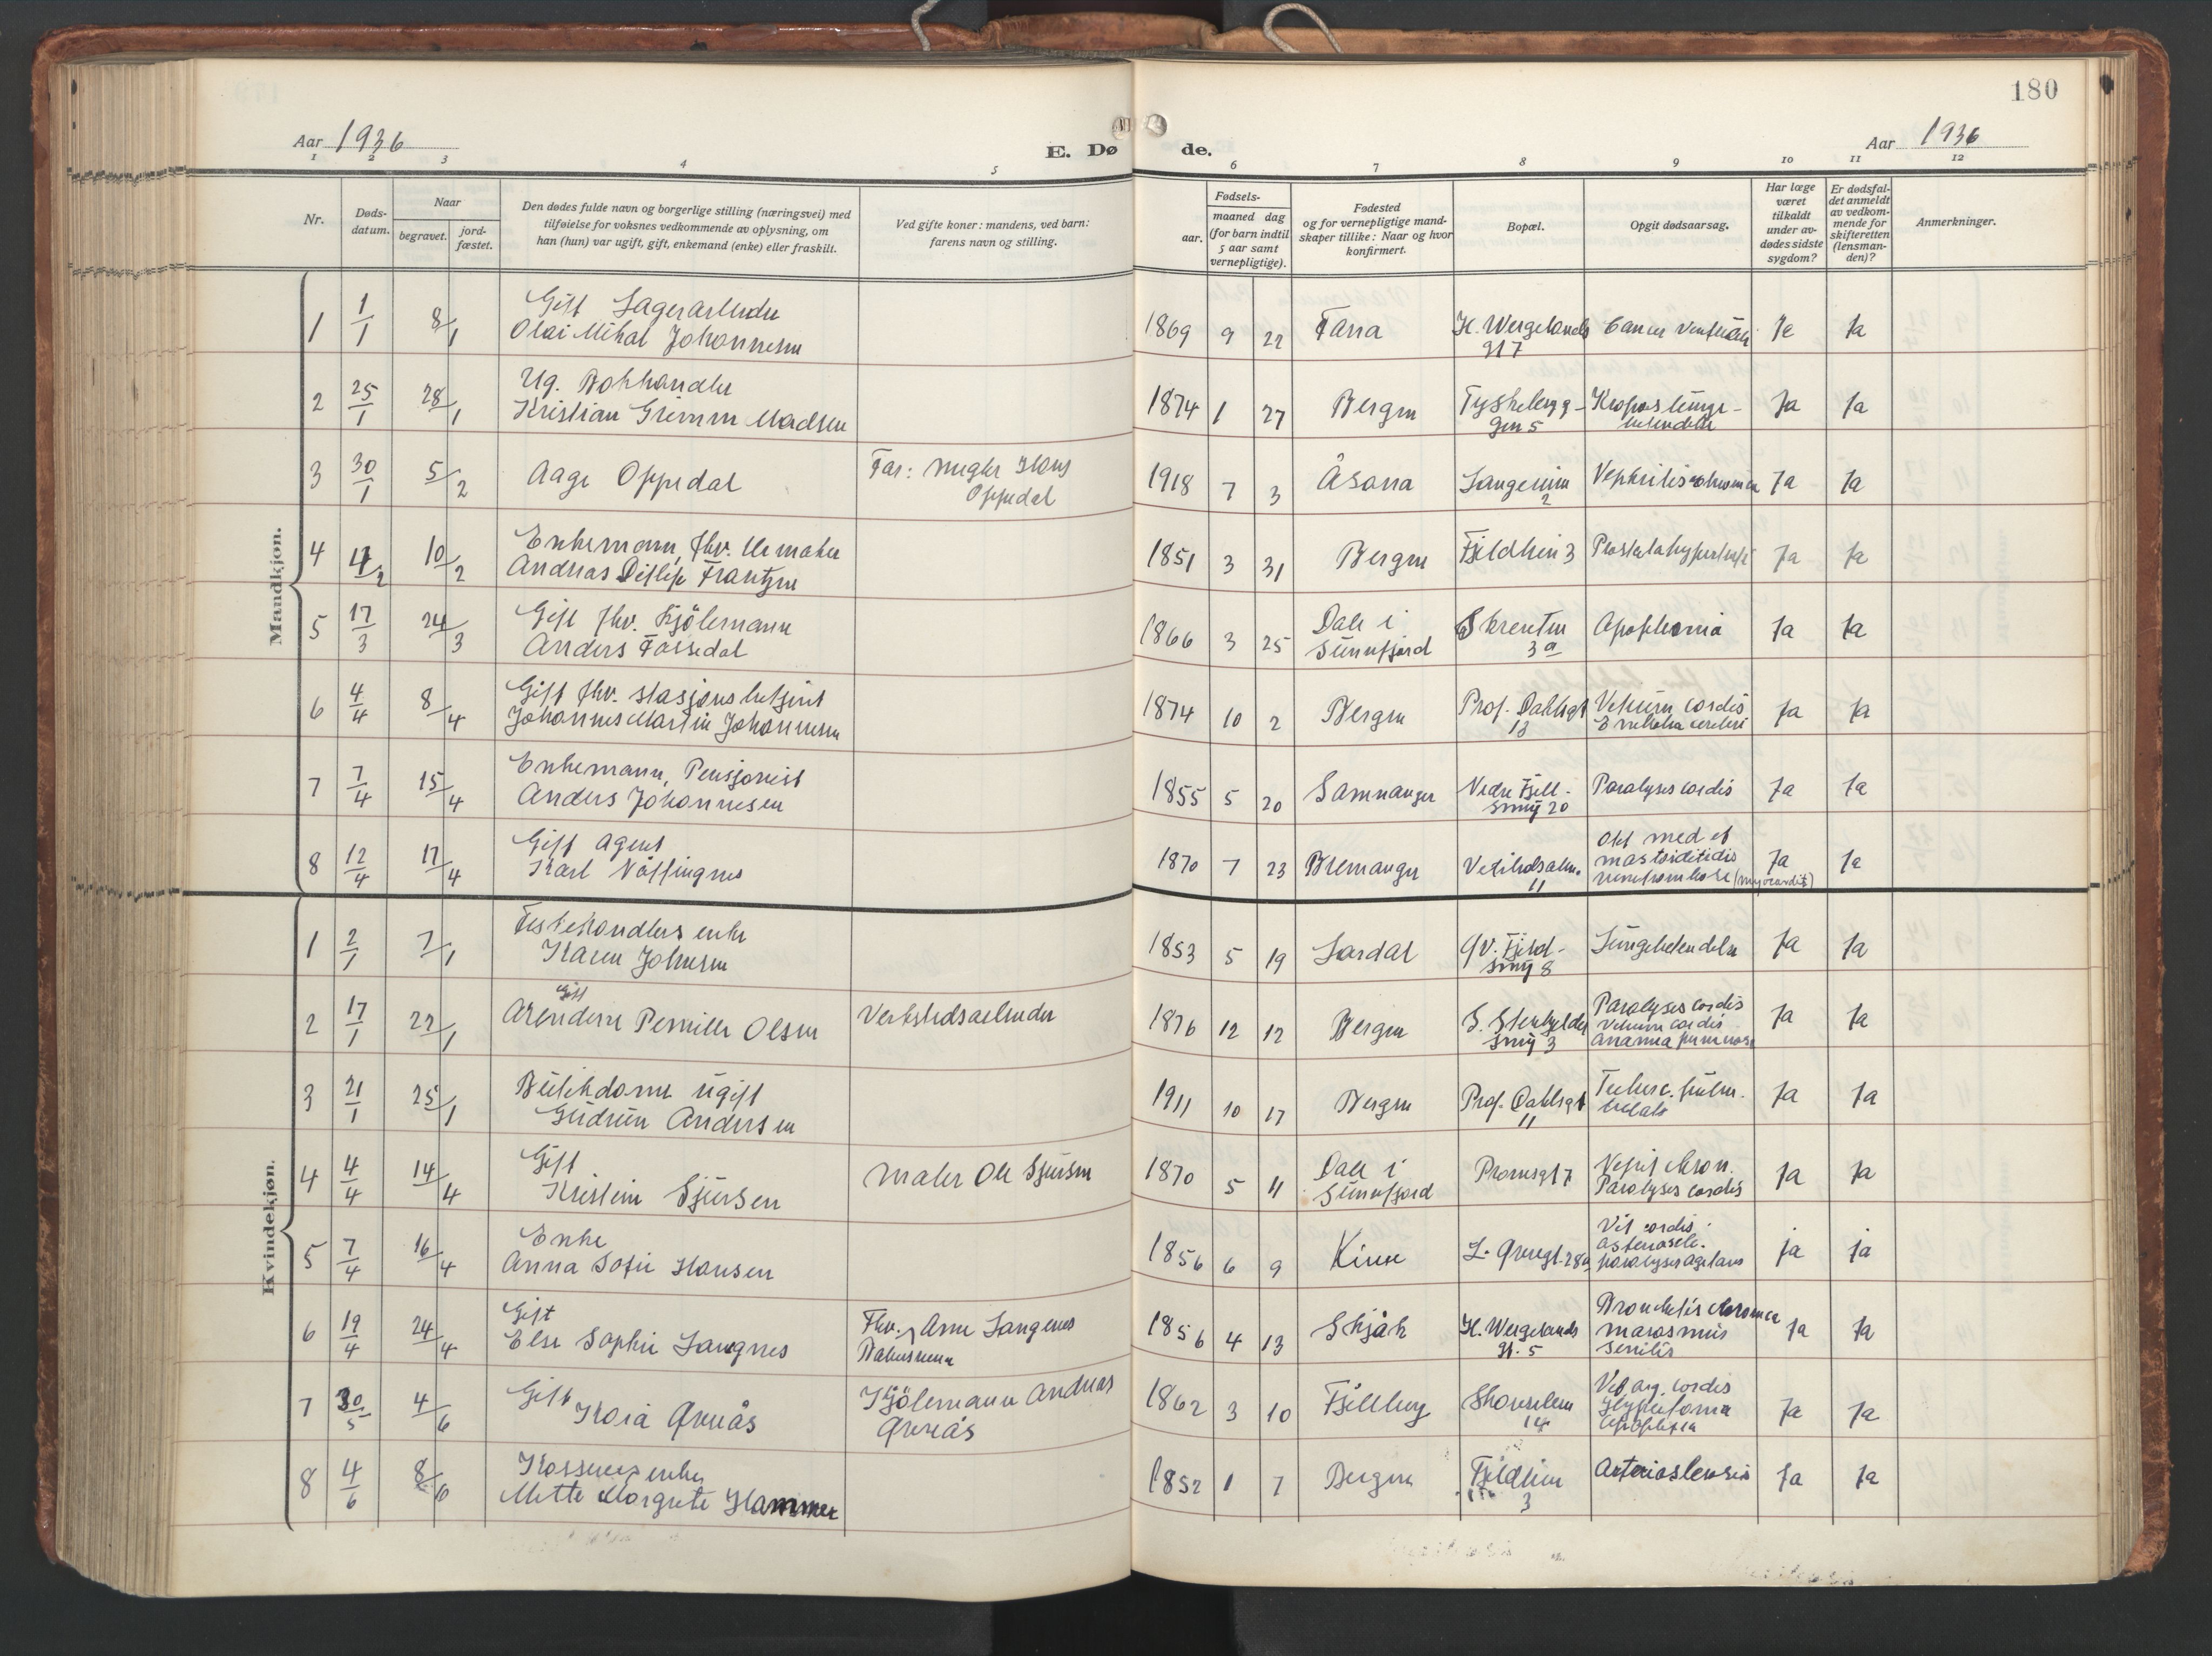 180
Aar 1936
E. Døde.
Aar 1936
1 2 3 4 5 6 7 8 9 10 11 12
Nr.
Døds-
datum.
Naar
begravet.
jord-
fæstet.
Den dødes fulde navn og borgerlige stilling (næringsvei) med
tilføielse for voksnes vedkommende av oplysning, om
han (hun) var ugift, gift, enkemand (enke) eller fraskilt.
Ved gifte koner: mandens, ved barn:
farens navn og stilling.
Fødsels-
aar.
maaned dag
(for barn indtil
5 aar samt
vernepligtige).
Fødested
og for vernepligtige mand-
skaper tillike: Naar og hvor
konfirmert.
Bopæl.
Opgit dødsaarsag.
Har læge
været
tilkaldt
under av-
dødes sidste
sygdom?
Er dødsfal-
det anmeldt
av vedkom-
mende for
skifteretten
(lensman-
den)?
Anmerkninger.
Mandkjøn.
1 1/1 8/1 Gift Lagerarbeider
Olai Mikal Johannesen
1869 9 22 Fana H. Wergelands
gt 7
Cancer ventriculi Ja Ja
2 25/1 28/1 Ug. Bokhandler
Kristian Grimm Madsen
1874 1 27 Bergen
Gen 5
Ja Ja
3 30/1 5/2 Aage Oppedal Far: Hans
Oppedal
1918 7 3 Åsana 2 Nephritis chronica Ja Ja
4 4/2 10/2 Enkemann, fhv. Urmaker
Andreas Ditlef Frantzen
1851 3 31 Bergen Fjeldhein 3 Prostatahypertrofi Ja Ja
5 17/3 24/3 Gift fhv. Kjölemann
Anders Fossedal
1866 3 25 Dale i
Sunnfjord
Skrenten
3a
Ja Ja
6 4/4 8/4 Gift fhv. stasjonsbetjent
Johannes Martin Johannesen
1874 10 2 Bergen Prof. Dahlsgt
13
Vitium cordis
cerebri
Ja Ja
7 7/4 15/4 Enkemann, Pensjonist
Anders Johannesen
1855 5 20 Samnanger Nedre Fjell-
smug 20
Paralyses cordis Ja Ja
8 12/4 17/4 Gift agent
Karl Nöttingnes
1870 7 23 Bremanger
11
med
(myocardit) Ja Ja
Kvindekjøn.
1 2/1 7/1 Fiskehandlers enke
Karen Johnsen
1853 5 19 Lærdal Øv. Fjeld-
smug 8
Lungebetendelse Ja Ja
2 17/1 22/1 Gift
Pernille Olsen Verkstedsarbeider
1876 12 12 Bergen
smug 3
Paralyses cordis
Vitium cordis
Ja Ja
3 21/1 25/1 Butikdame ugift
Gudrun Andersen
1911 10 17 Bergen Prof. Dahlsgt
11
Tuberc. pulm.
Ja Ja
4 4/4 14/4 Gift
Kristine Sjursen Maler Ole Sjursen
1870 5 11 Dale i
Sunnfjord
Promsgt 7 Nefrit chron.
Paralyses cordis
Ja Ja
5 7/4 16/4 Enke
Anna Sofie Hansen
1856 6 9 Kinn L. Øvregt. 28a Vit cordis
paralyses agitans
ja ja
6 19/4 24/4 Gift
Else Sophie Langnes Fhv. Arne Langnes
1856 4 13 Skjåk H. Wergelands
gt. 5
Bronchitis chronica
marasmus
senilis
Ja Ja
7 30/5 4/6 Gift
Kaia Øvreås Kjölemann Andreas
Øvreås
1862 3 10 Fjellberg
14
cordis
Ja Ja
8 4/6 8/6 enke
Mette Margrete Hammer
1852 1 7 Bergen Fjeldhein
3
Ja Ja